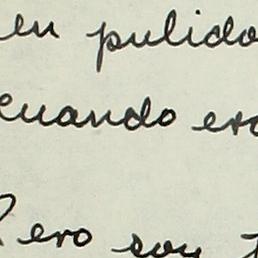 en pulido
cuando era
Pero son